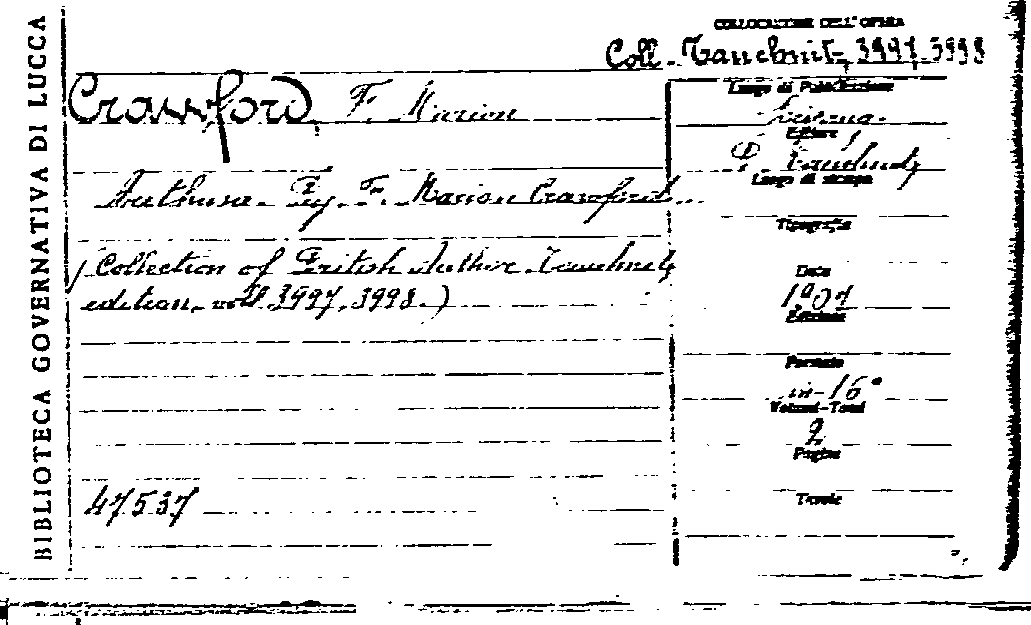 BIBLIOTECA GOVERNATIVA DI LUCCA
COLLOCAZIONE DELL'OPERA
Coll. Tauchnitz, 3997, 3998
Crawford, F. Marion
Arethusa. By F. Marion Crawford...
(Collection of British Author. Tauchnitz
edition, voll 3997, 3998.)
47537
Luogo di Pubblicazione
Editore
B. Tauchnitz
Luogo di stampa
Tipografia
Data
1907
Edizione
Formato
in-16°
Volumi-Tomi
2
Pagine
Tavole